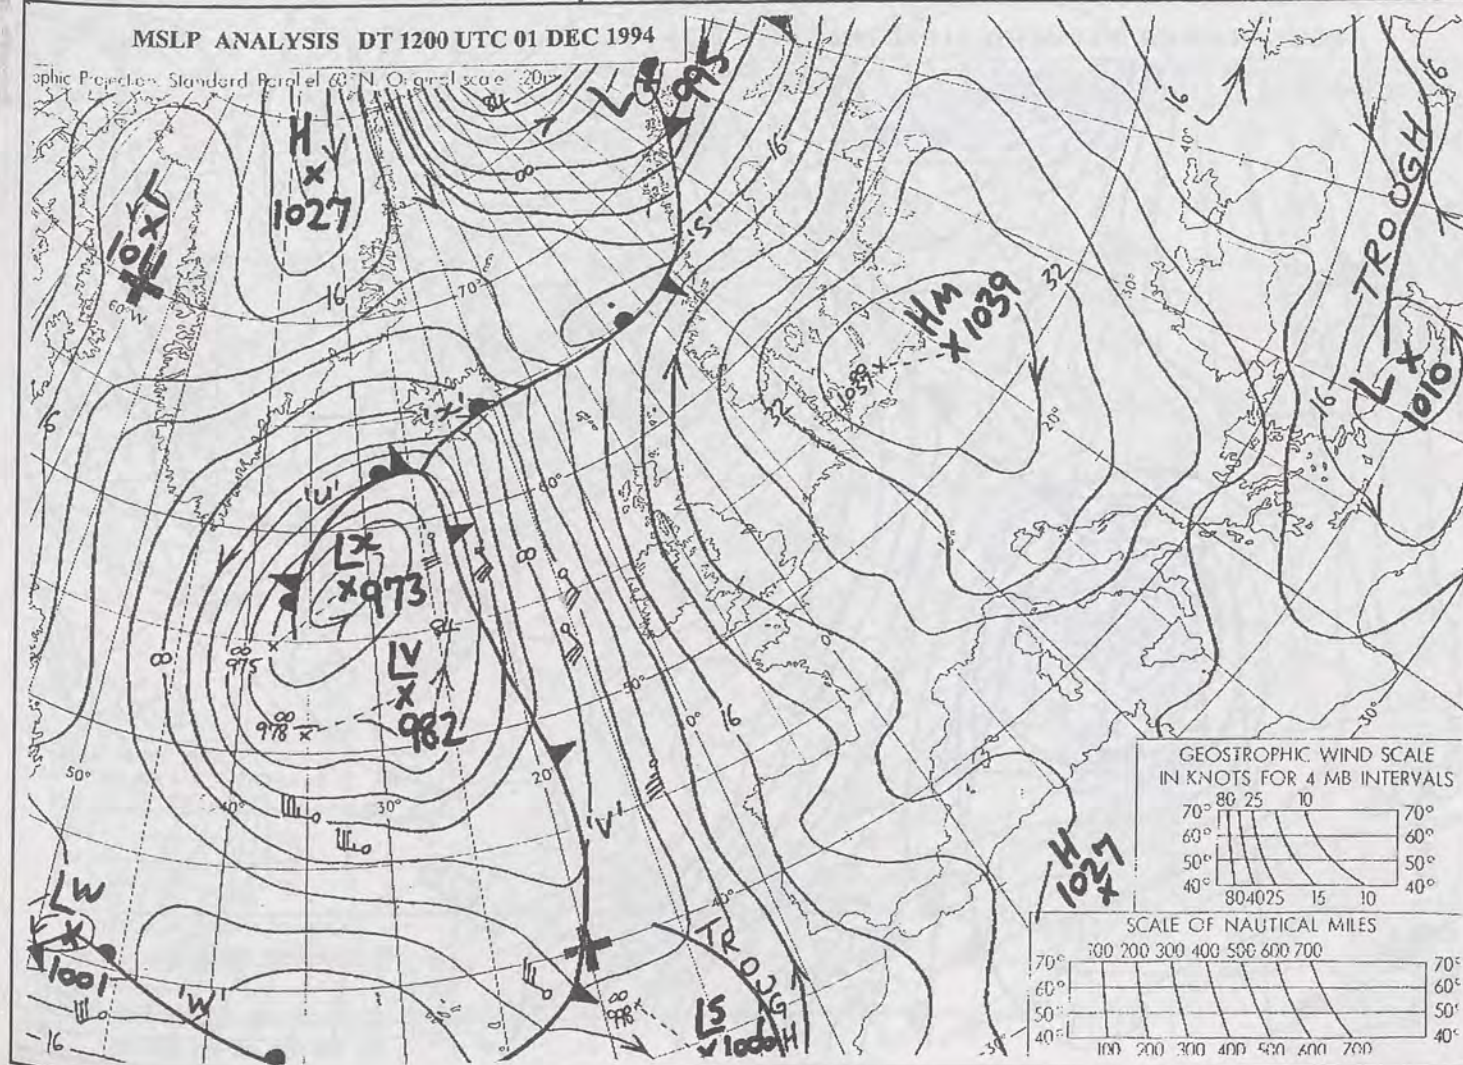 MSLP ANALYSIS DT 1200 UTC 01 DEC 1994
Standard Parallel 60°N, Original scale
H
1027
L
1011
60°W
16
84
00
L
995
16
'S'
70°
16
HM
1039
00
1037
32
32
20°
30°
40°
16
TROUGH
16
L
1010
16
'X'
60°
'U'
LX
973
84
00
975
LV
982
00
978
00
00
50°
0°
16
50°
40°
30°
20°
'V'
40°
LW
1001
'W'
16
TROUGH
LS
1000
H
1027
30°
GEOSTROPHIC WIND SCALE
IN KNOTS FOR 4 MB INTERVALS
80 25 10
70° 70°
60° 60°
50° 50°
40° 40°
80 40 25 15 10
SCALE OF NAUTICAL MILES
100 200 300 400 500 600 700
70° 70°
60° 60°
50° 50°
40° 40°
100 200 300 400 500 600 700